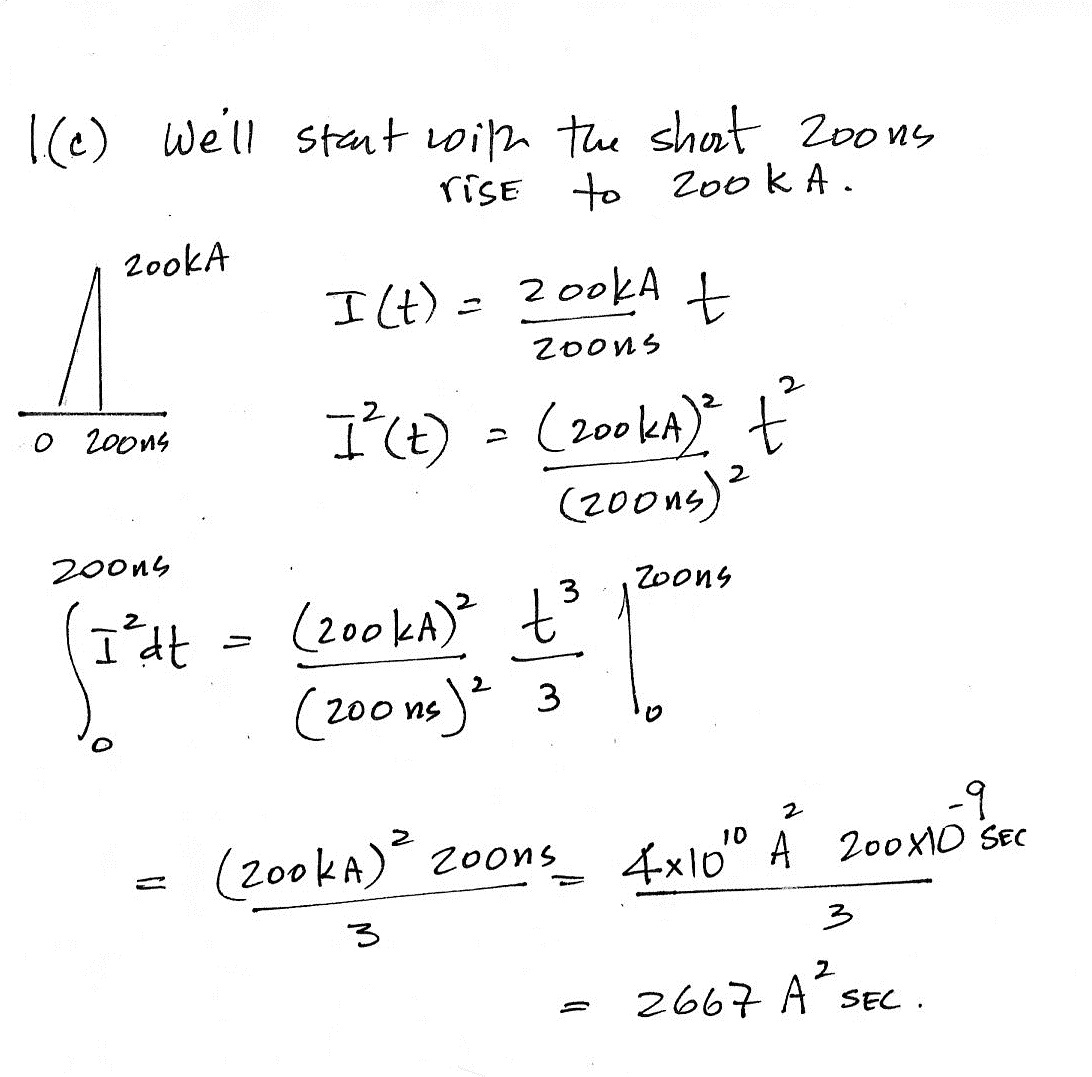 1.(c) We'll start with the short 200ns
rise to 200kA.
200kA
0 200ns
I(t) = 200kA / 200ns t
I²(t) = (200kA)² / (200ns)² t²
∫₀²⁰⁰ⁿˢ I²dt = (200kA)² / (200ns)² t³ / 3 |₀²⁰⁰ⁿˢ
= (200kA)² 200ns / 3 = 4x10¹⁰ A² 200x10⁻⁹ SEC / 3
= 2667 A² SEC.